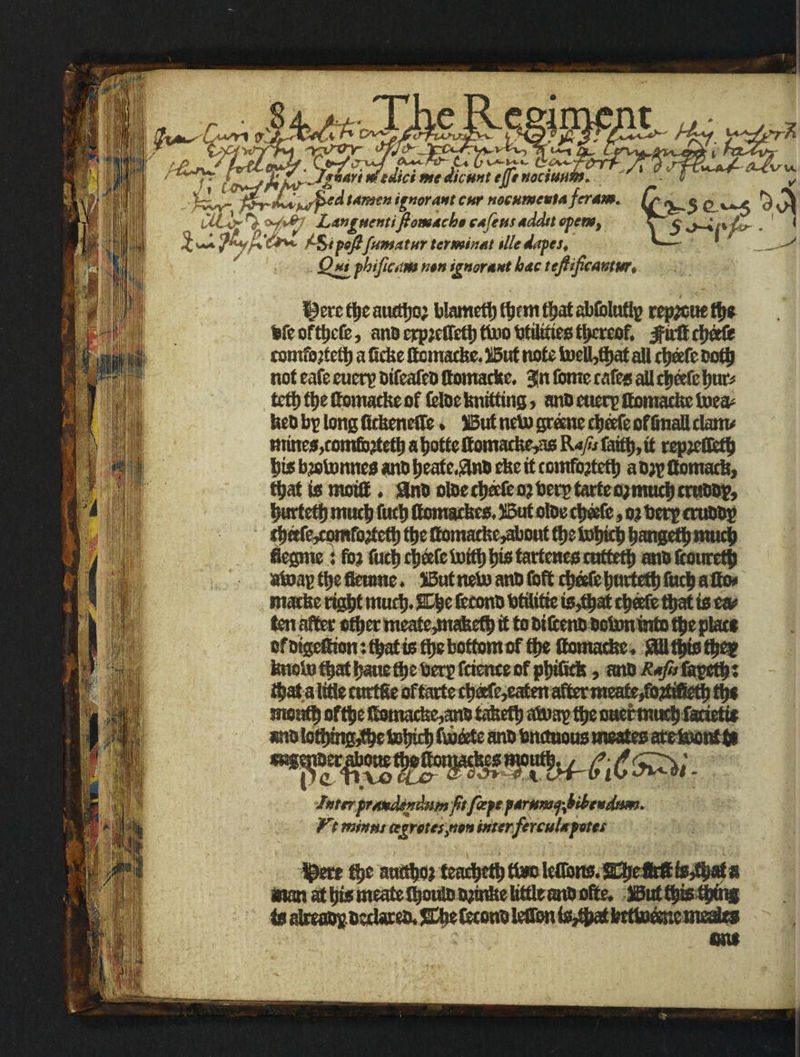 84 The Regiment
Ignari medici me dicunt esse nociuum.
Sed tamen ignorant cur nocumenta feram.
Languenti stomacho caseus addit opem,
Si post sumatur terminat ille dapes.
Qui phisicam non ignorant hac testificantur.
Here the author blameth them that absolutly repreue the
vse of chese, and expresseth two vtilities thereof. First chéese
comforteth a sicke stomacke. But note well, that all chéese doth
not ease euery diseased stomacke. In some cases all chéese hur-
teth the stomacke of selde knitting, and euery stomacke wea-
ked by long sickenesse. But new gréene chéese of small clam-
mines, comforteth a hotte stomacke, as Rasis saith, it represseth
his brownnes and heate. And eke it comforteth a dry stomack,
that is moist. And olde chéese or very tarte or much cruddy,
hurteth much such stomackes. But olde chéese, or very cruddy
chéese, comforteth the stomacke, about the which hangeth much
flegme: for such chéese with his tartenes cutteth and scoureth
away the fleume. But new and soft chéese hurteth such a sto-
macke right much. The second vtilitie is, that chéese that is ea-
ten after other meate, maketh it to discend down into the place
of digestion: that is the bottom of the stomacke. All this they
know that haue the very science of phisick, and Rasis sayeth:
that a litle curtsie of tarte chéese, eaten after meate, fortifieth the
mouth of the stomacke, and taketh away the ouer much sacietie
and lothing, the which swéete and vnctuous meates are wont to
engender aboue the stomackes mouth.
Inter prandendum sit sæpe parumq; bibendum.
Vt minus ægrotes, non inter fercula potes
Here the author teacheth two lessons. The first is, that a
man at his meate should drinke little and ofte. But this thing
is already declared. The second lesson is, that betwéene meales
one